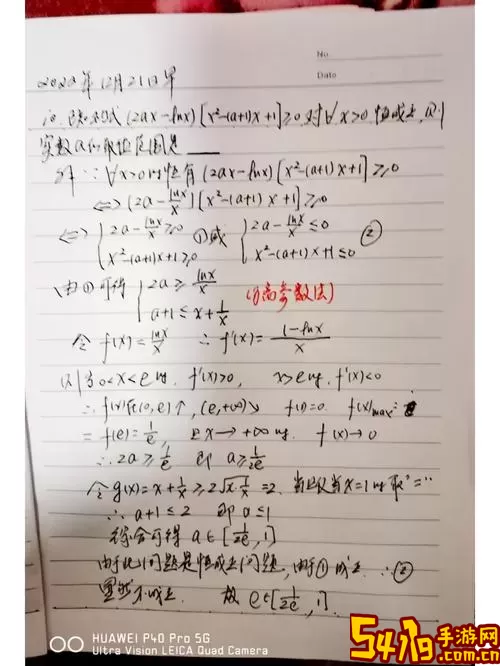 No
Date
2020年12月21日早
10. 已知不等式 (2ax-lnx)[x²-(a+1)x+1]≥0 对∀x>0恒成立,则
实数a的取值范围是____
解 ∵ ∀x>0时恒有 (2ax-lnx)[x²-(a+1)x+1]≥0
⇔ (2a-lnx/x)[x²-(a+1)x+1]≥0
⇔ { 2a-lnx/x≥0 ①或 { 2a-lnx/x≤0 ②
x²-(a+1)x+1≥0 x²-(a+1)x+1≤0
由①可得 { 2a≥lnx/x
a+1≤x+1/x (分离参数法)
令 f(x)=lnx/x ∴ f'(x)=(1-lnx)/x
则当0<x<e时, f'(x)>0, x>e时, f'(x)<0
∴ f(x)在(0,e)↑, (e,+∞)↘ f(1)=0. f(x)max
=f(e)=1/e, 且x→+∞时, f(x)→0
∴ 2a≥1/e 即 a≥1/2e
令g(x)=x+1/x≥2√x·1/x=2, 当且仅当x=1时取"="
∴ a+1≤2 即a≤1
综合可得 a∈[1/2e, 1]
由于此问题是恒成立问题, 由于①成立 ∴②
显然不成立. 故 e∈[1/2e, 1].
HUAWEI P40 Pro 5G
Ultra Vision LEICA Quad Camera
541g手游网
.com.cn